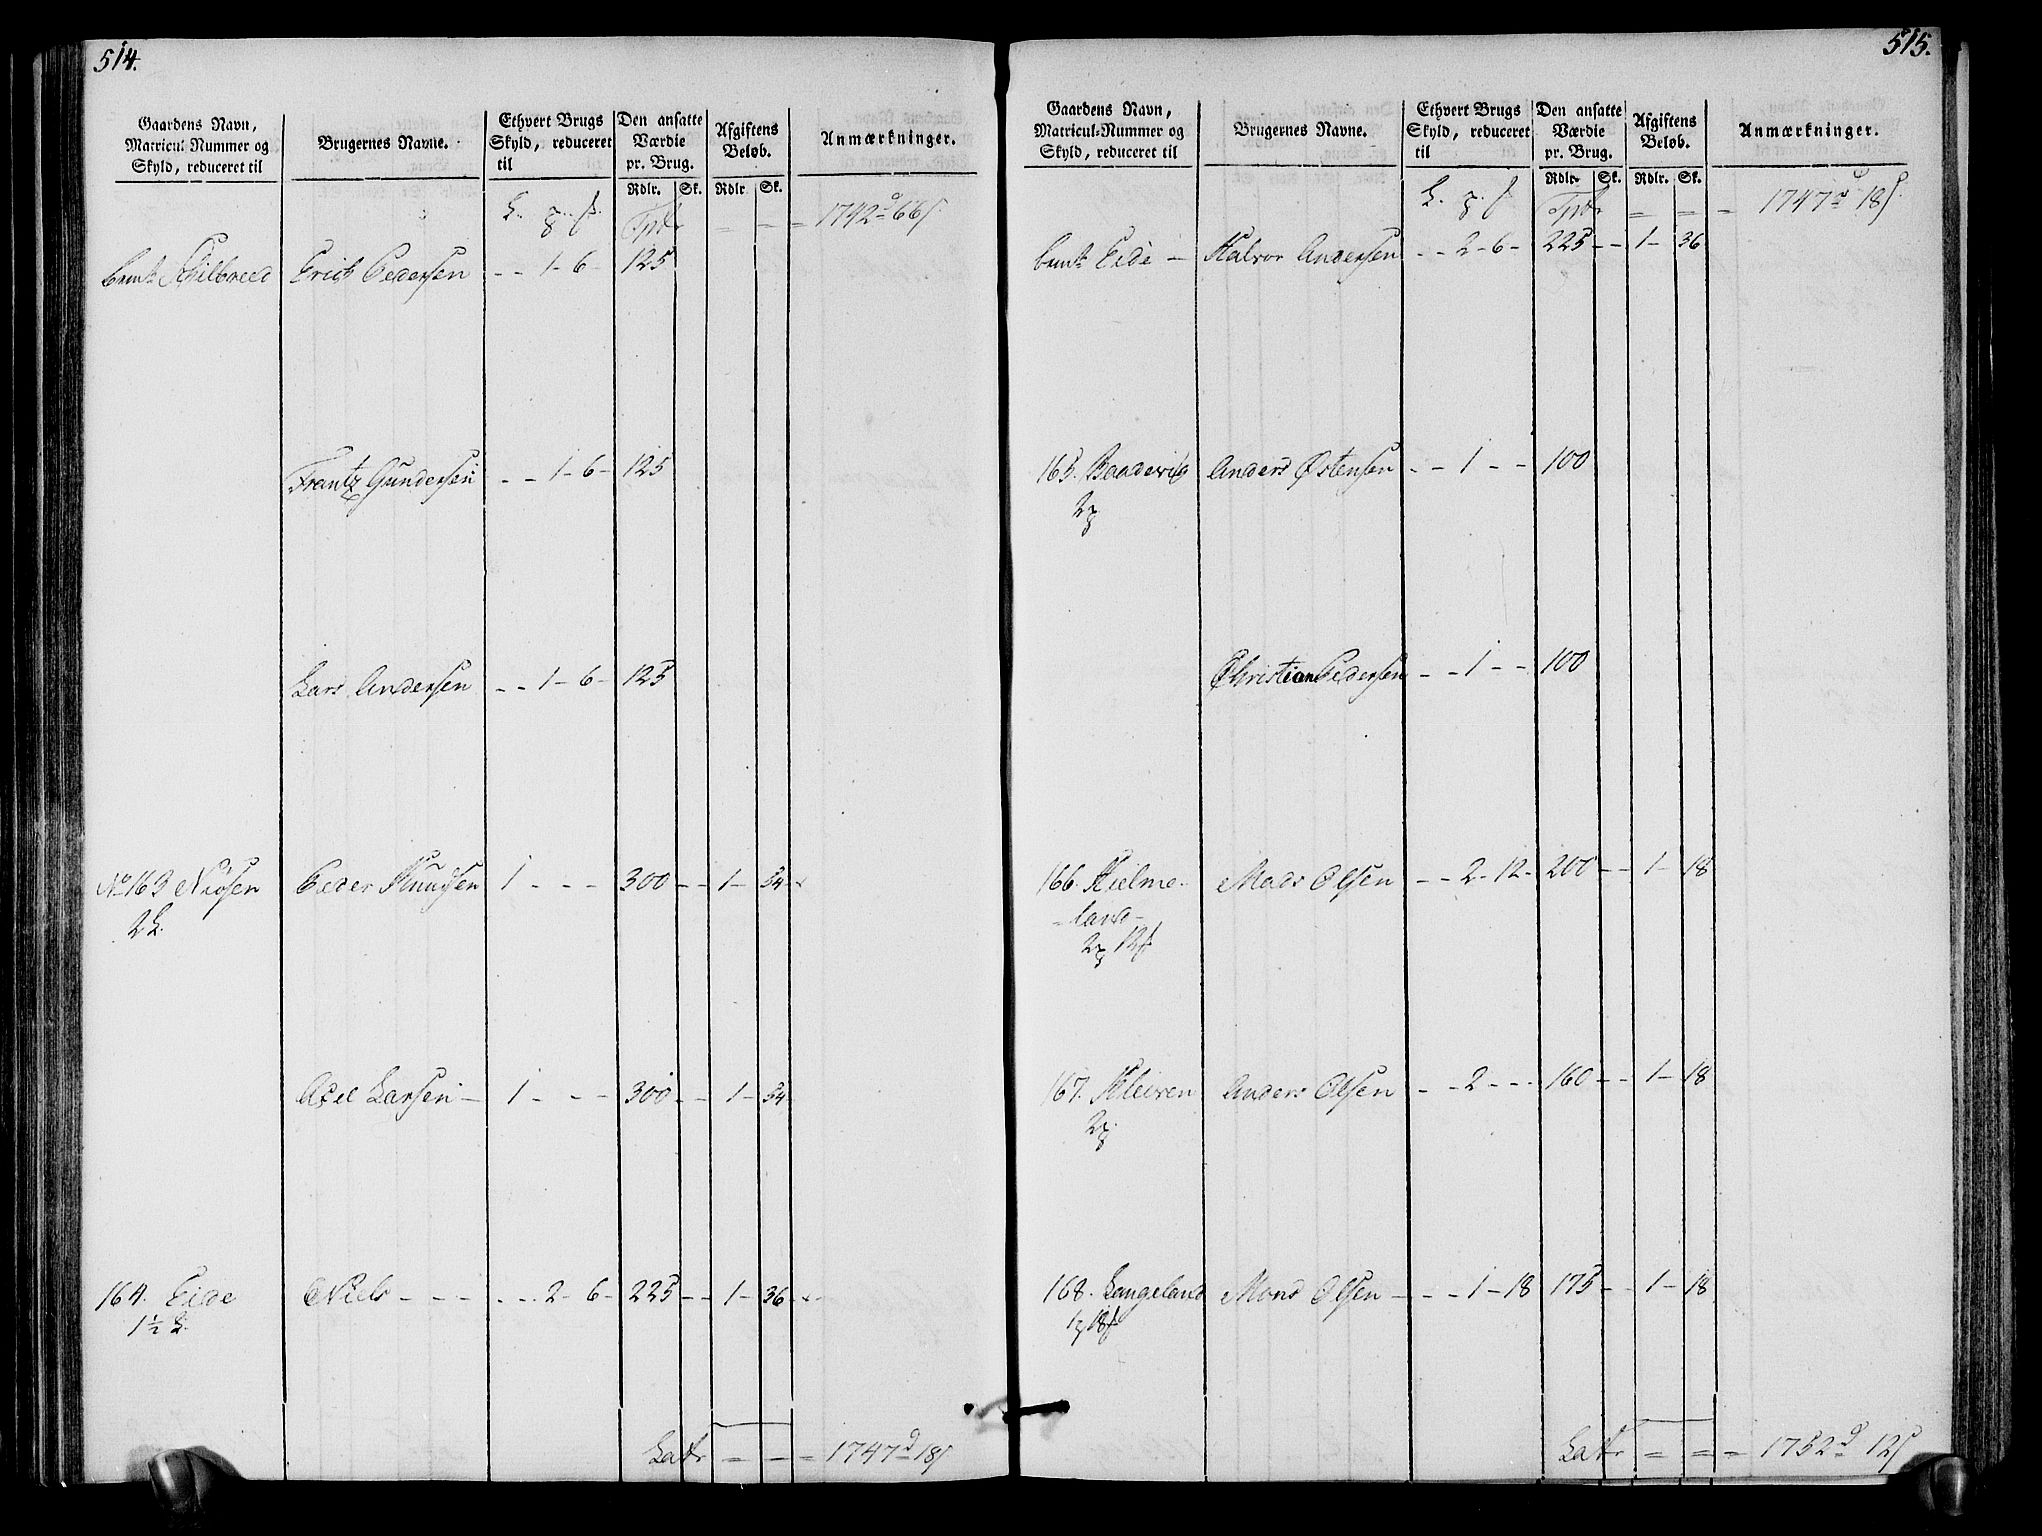 514.
Gaardens Navn, Matricul-Nummer og Skyld, reduceret til
Brugernes Navne.
Ethvert Brugs Skyld, reduceret til
Den ansatte Værdie pr. Brug.
Afgiftens Beløb.
Anmærkninger.
Rdlr. Sk. Rdlr. Sk.
Tpt = = = 1742 d 66 s
Erich Pedersen - - 1 - 6 - 125
Frantz Gundersen - - 1 - 6 - 125
Lars Andersen - - 1 - 6 - 125
No 163 Niøsen Peder Knudsen 1 - - - 300 - - 1 - 54
2 L.
Axel Larsen - 1 - - - 300 - - 1 - 54
164. Eide Niels - - - - - 2 - 6 - 225 - - 1 - 36
1½ L.
Latr = = = 1747 d 18 s
515.
Gaardens Navn, Matricul-Nummer og Skyld, reduceret til
Brugernes Navne.
Ethvert Brugs Skyld, reduceret til
Den ansatte Værdie pr. Brug.
Afgiftens Beløb.
Anmærkninger.
Rdlr. Sk. Rdlr. Sk.
Tpt = = = 1747 d 18 s
Eide - Halvor Andersen - - 2 - 6 - 225 - - 1 - 36
165. Baadevig Anders Østensen - - 1 - - 100
Christian Pedersen - - 1 - - 100
166. Hielme- Mads Olsen - - 2 - 12 - 200 - - 1 - 18
land
167. Kleiven Anders Olsen - - 2 - - - 160 - - 1 - 18
168. Langeland Mons Olsen - - - 1 - 18 175 - - 1 - 18
Latr = = = 1752 d 12 s